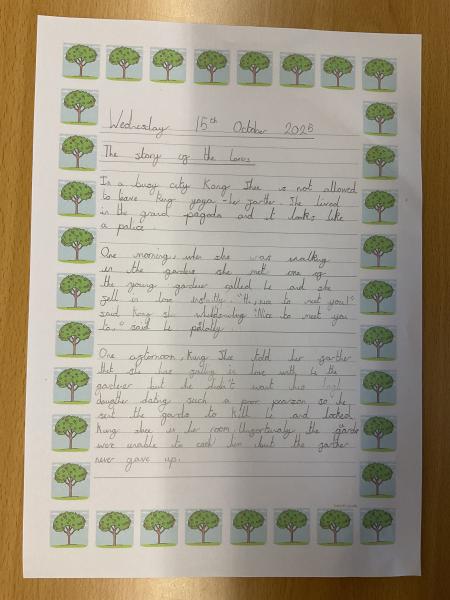 Wednesday 15th October 2025
The story of the lovers
In a busy city Kong Shee is not allowed
to leave king yoga her farther. She lived
in the grand pagoda and it looks like
a palice.
One morning, when she was walking
in the gardens she met one of
the young gardener called Le and she
fell in love instantly. "Hi, nice to meet you!"
said Kong she "Nice to meet you
to," said Le politly
One afternoon, Kung Shee told her farther
that she was falling in love with Le the
gardener but he didn't want his
daughter dating such a poor pearson so he
sent the gards to kill Le and locked
Kung shee in her room. Unfortunatly the gards
were unable to cach him but the farther
never gave up.